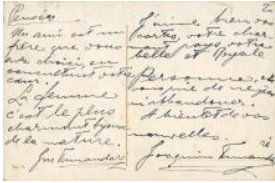 Pensées
Un ami est un
frère que vous
avez choisi, en
consultant votre
cœur.
La femme
c'est le plus
charmant bijou
de la nature.
J'aime bien vos
cartes, votre char-
mant pays, votre
belle et Royale
Personne,
m'abandonner.
A bientôt de vos
nouvelles.
Joaquim